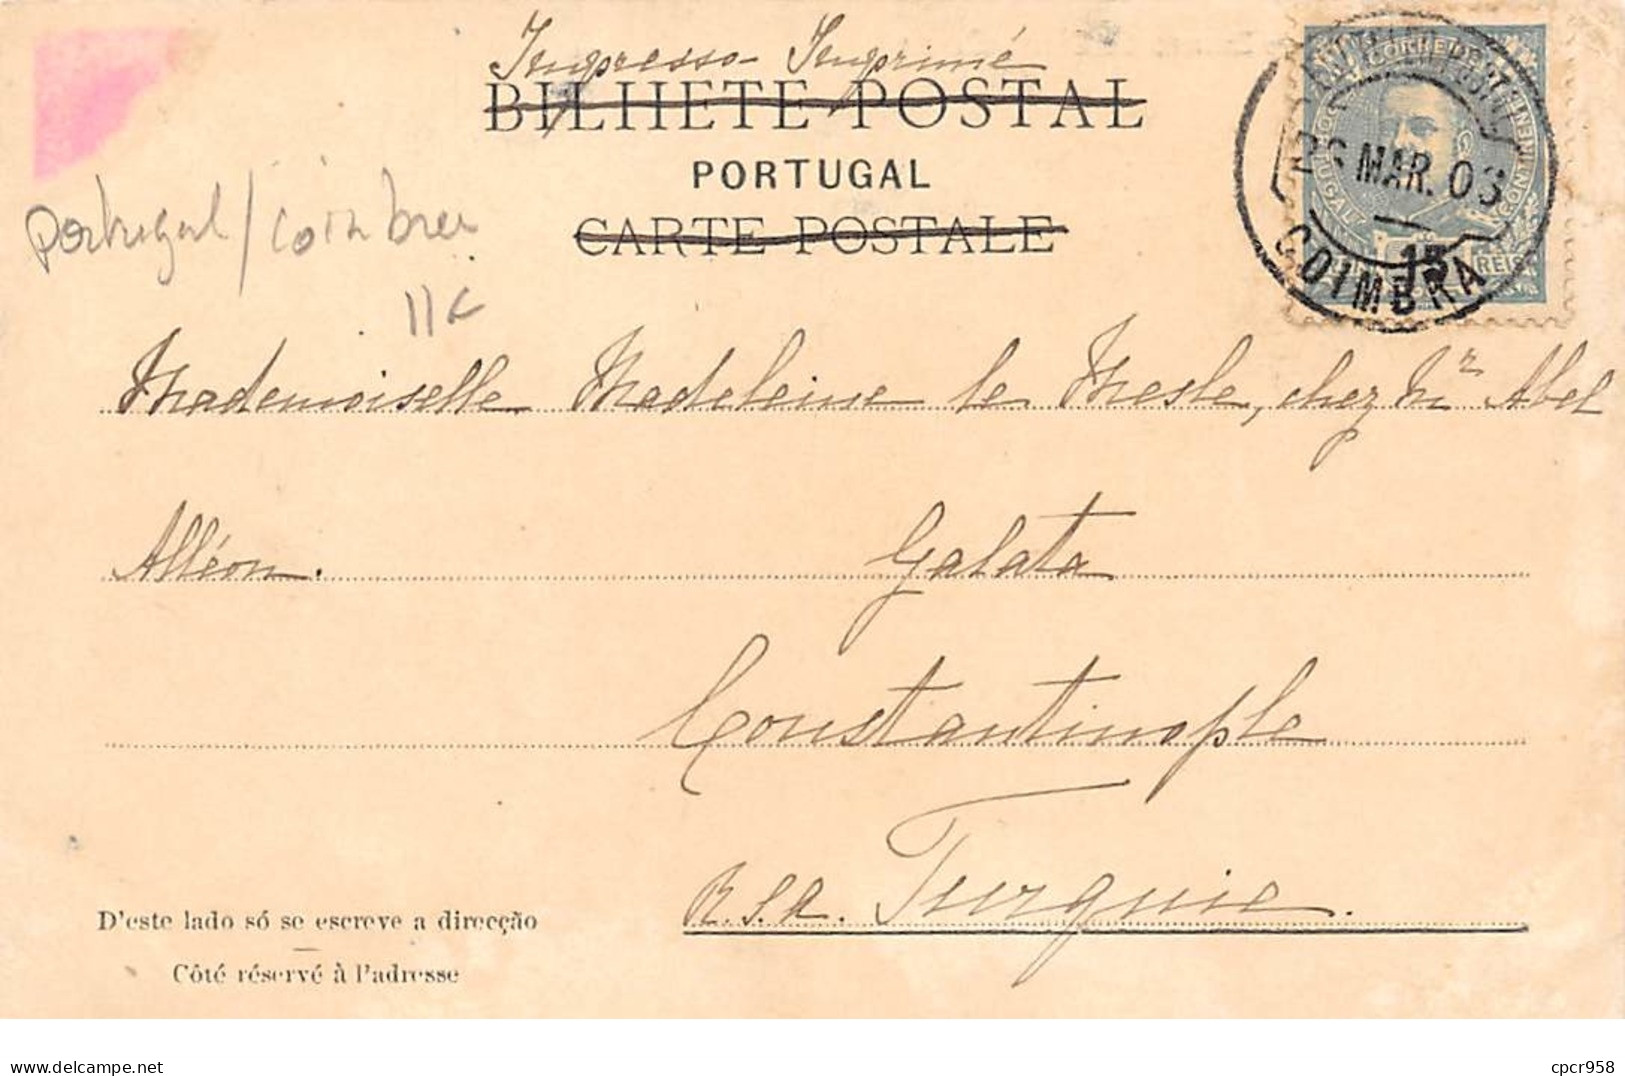 Impresso - Imprimé
BILHETE POSTAL
PORTUGAL
CARTE POSTALE
CORREIOS
PORTUGAL
CONTINENTE
REIS
MAR. 03
15
COIMBRA
Portugal / Coimbra
11€
Mademoiselle Madeleine le Mesle, chez Mr Abel
Alléon. Galata
Constantinople
R.S.A. Turquie.
D'este lado só se escreve a direcção
Côté réservé à l'adresse
cpcr958